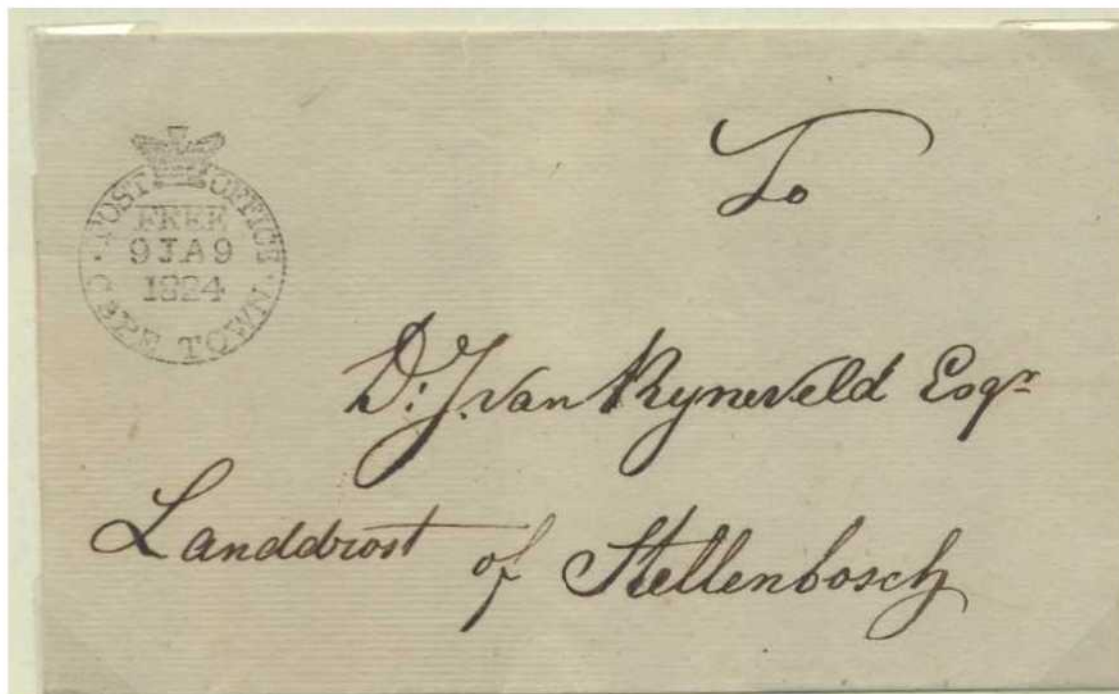 POST OFFICE
FREE
9JA9
1824
CAPE TOWN
To
D: J. van Ryneveld Esqr
Landdrost of Stellenbosch